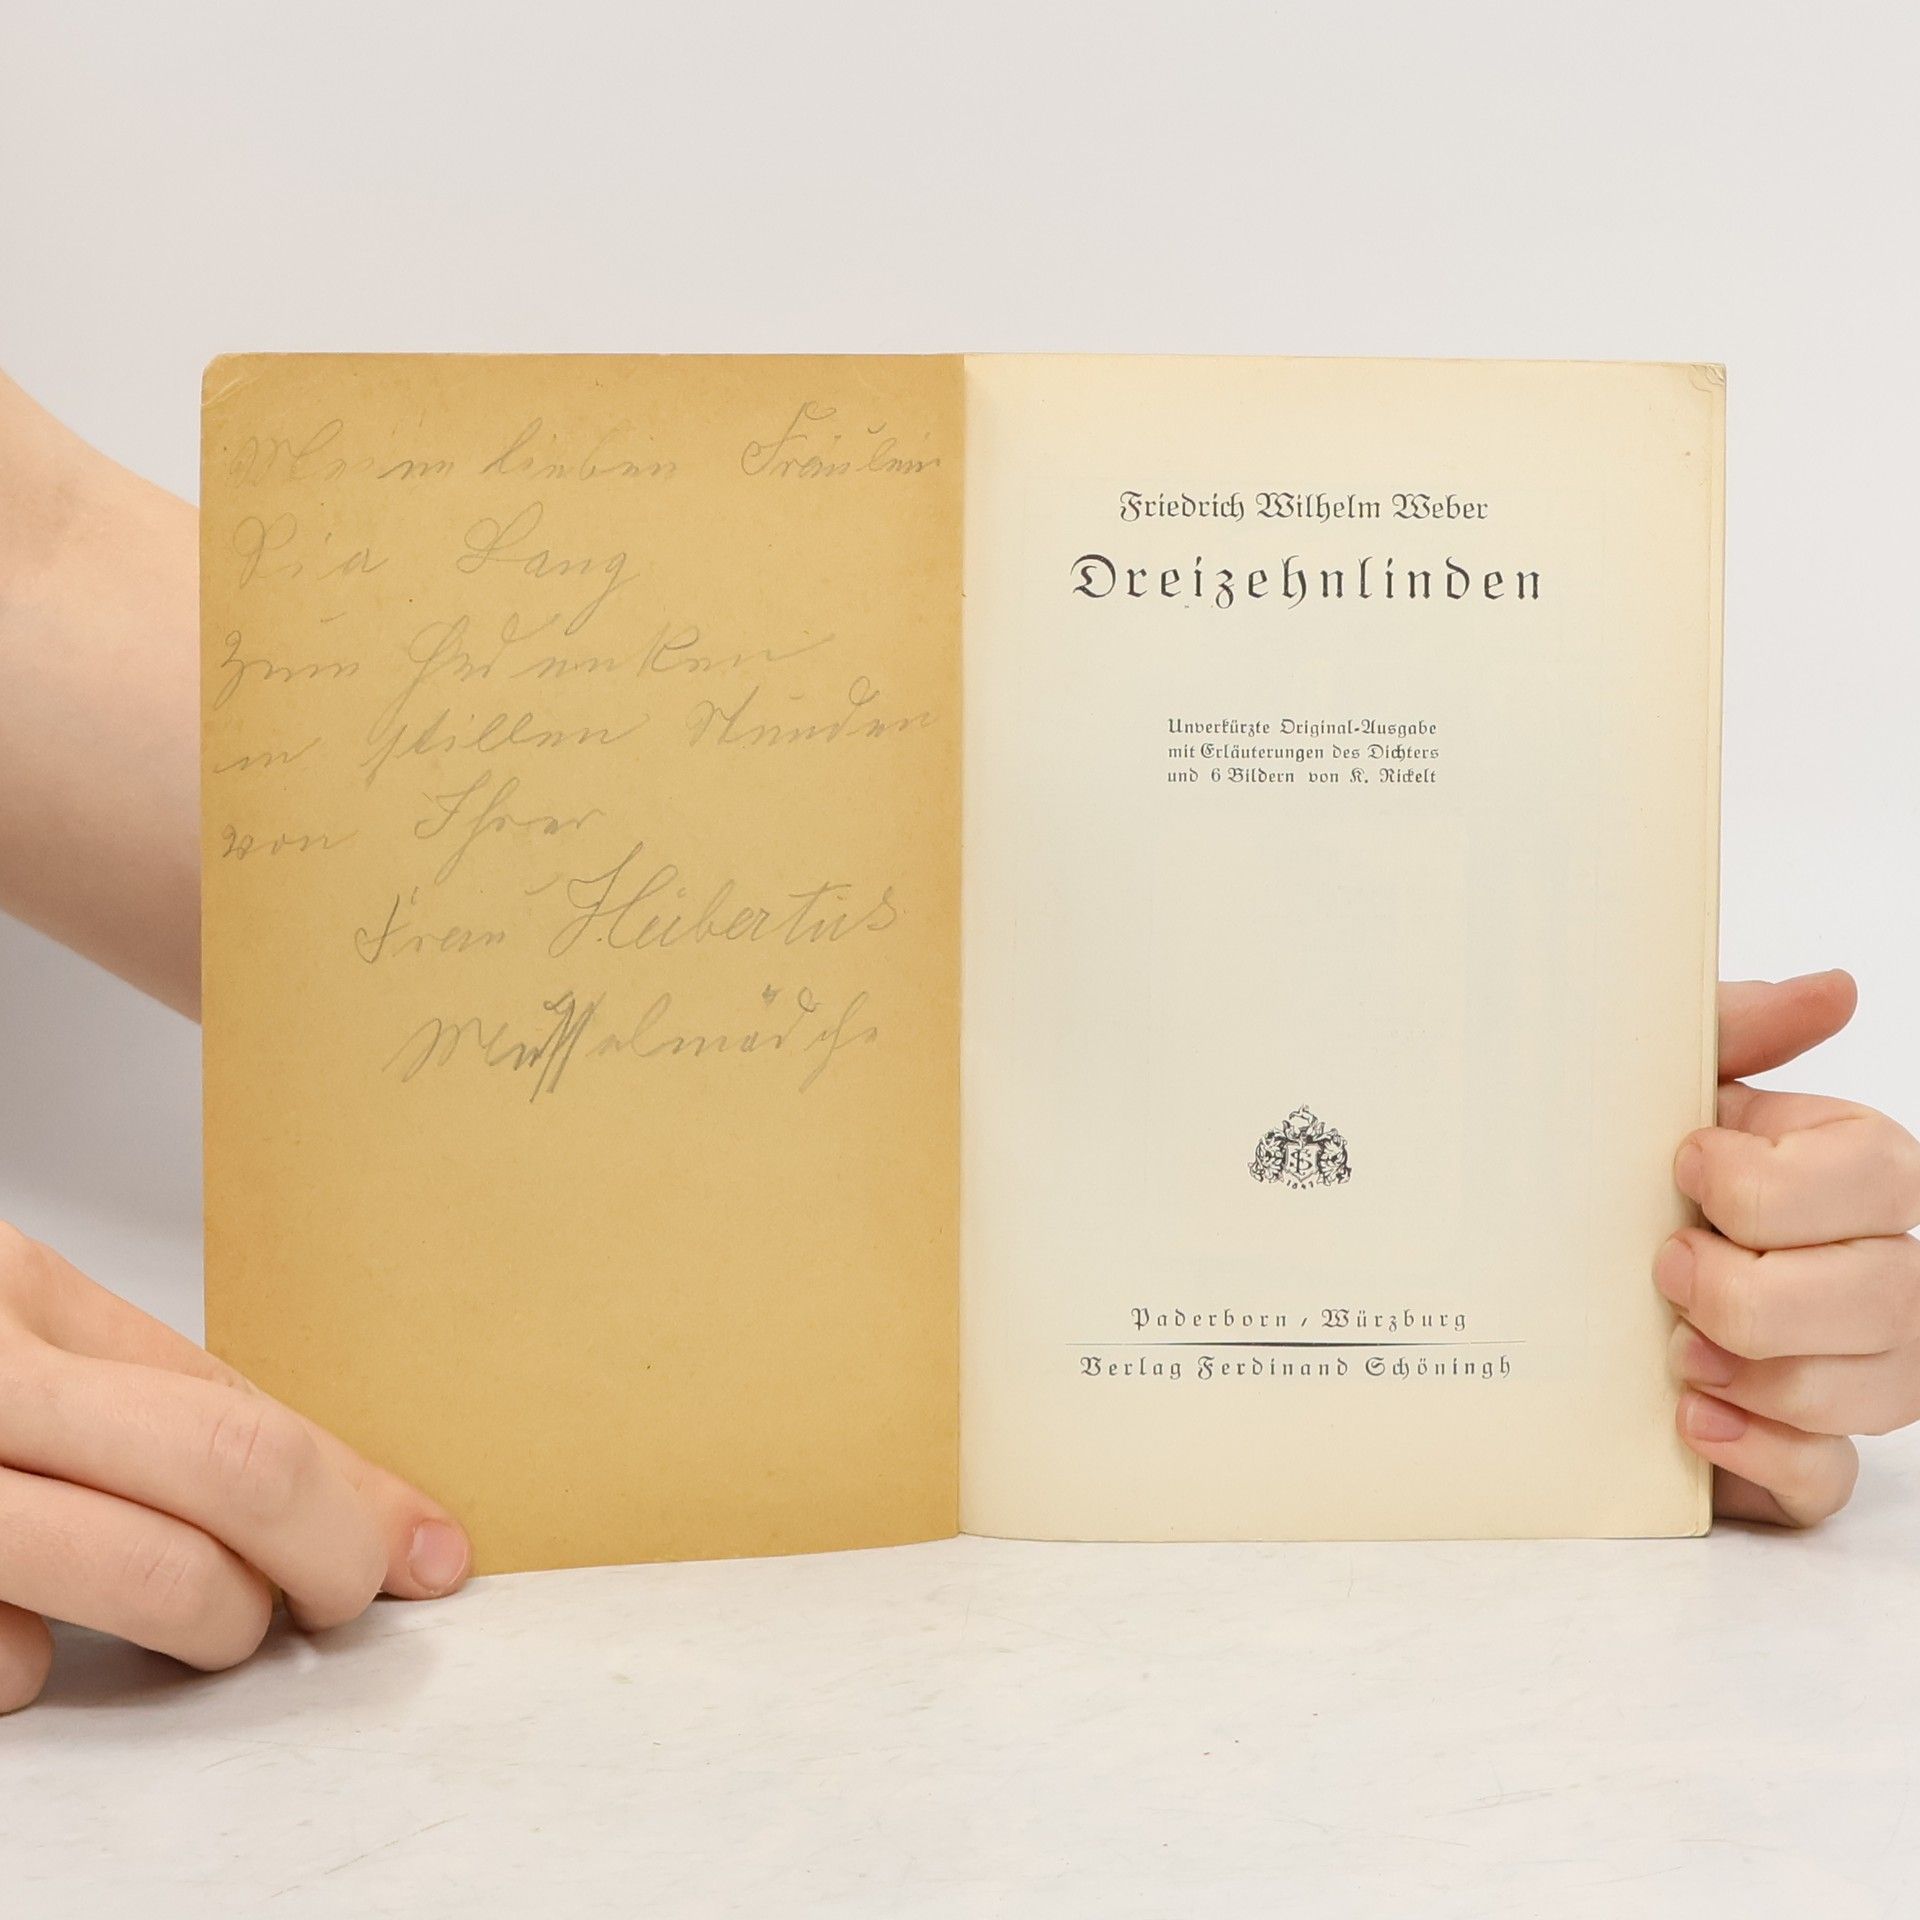 Meine lieben Fräulein
Pia Lang
zum Gedenken
in stillen Stunden
von Ihrer
Frau Hubertus
Friedrich Wilhelm Weber
Dreizehnlinden
Unverkürzte Original-Ausgabe
mit Erläuterungen des Dichters
und 6 Bildern von K. Rickelt
1847
Paderborn / Würzburg
Verlag Ferdinand Schöningh